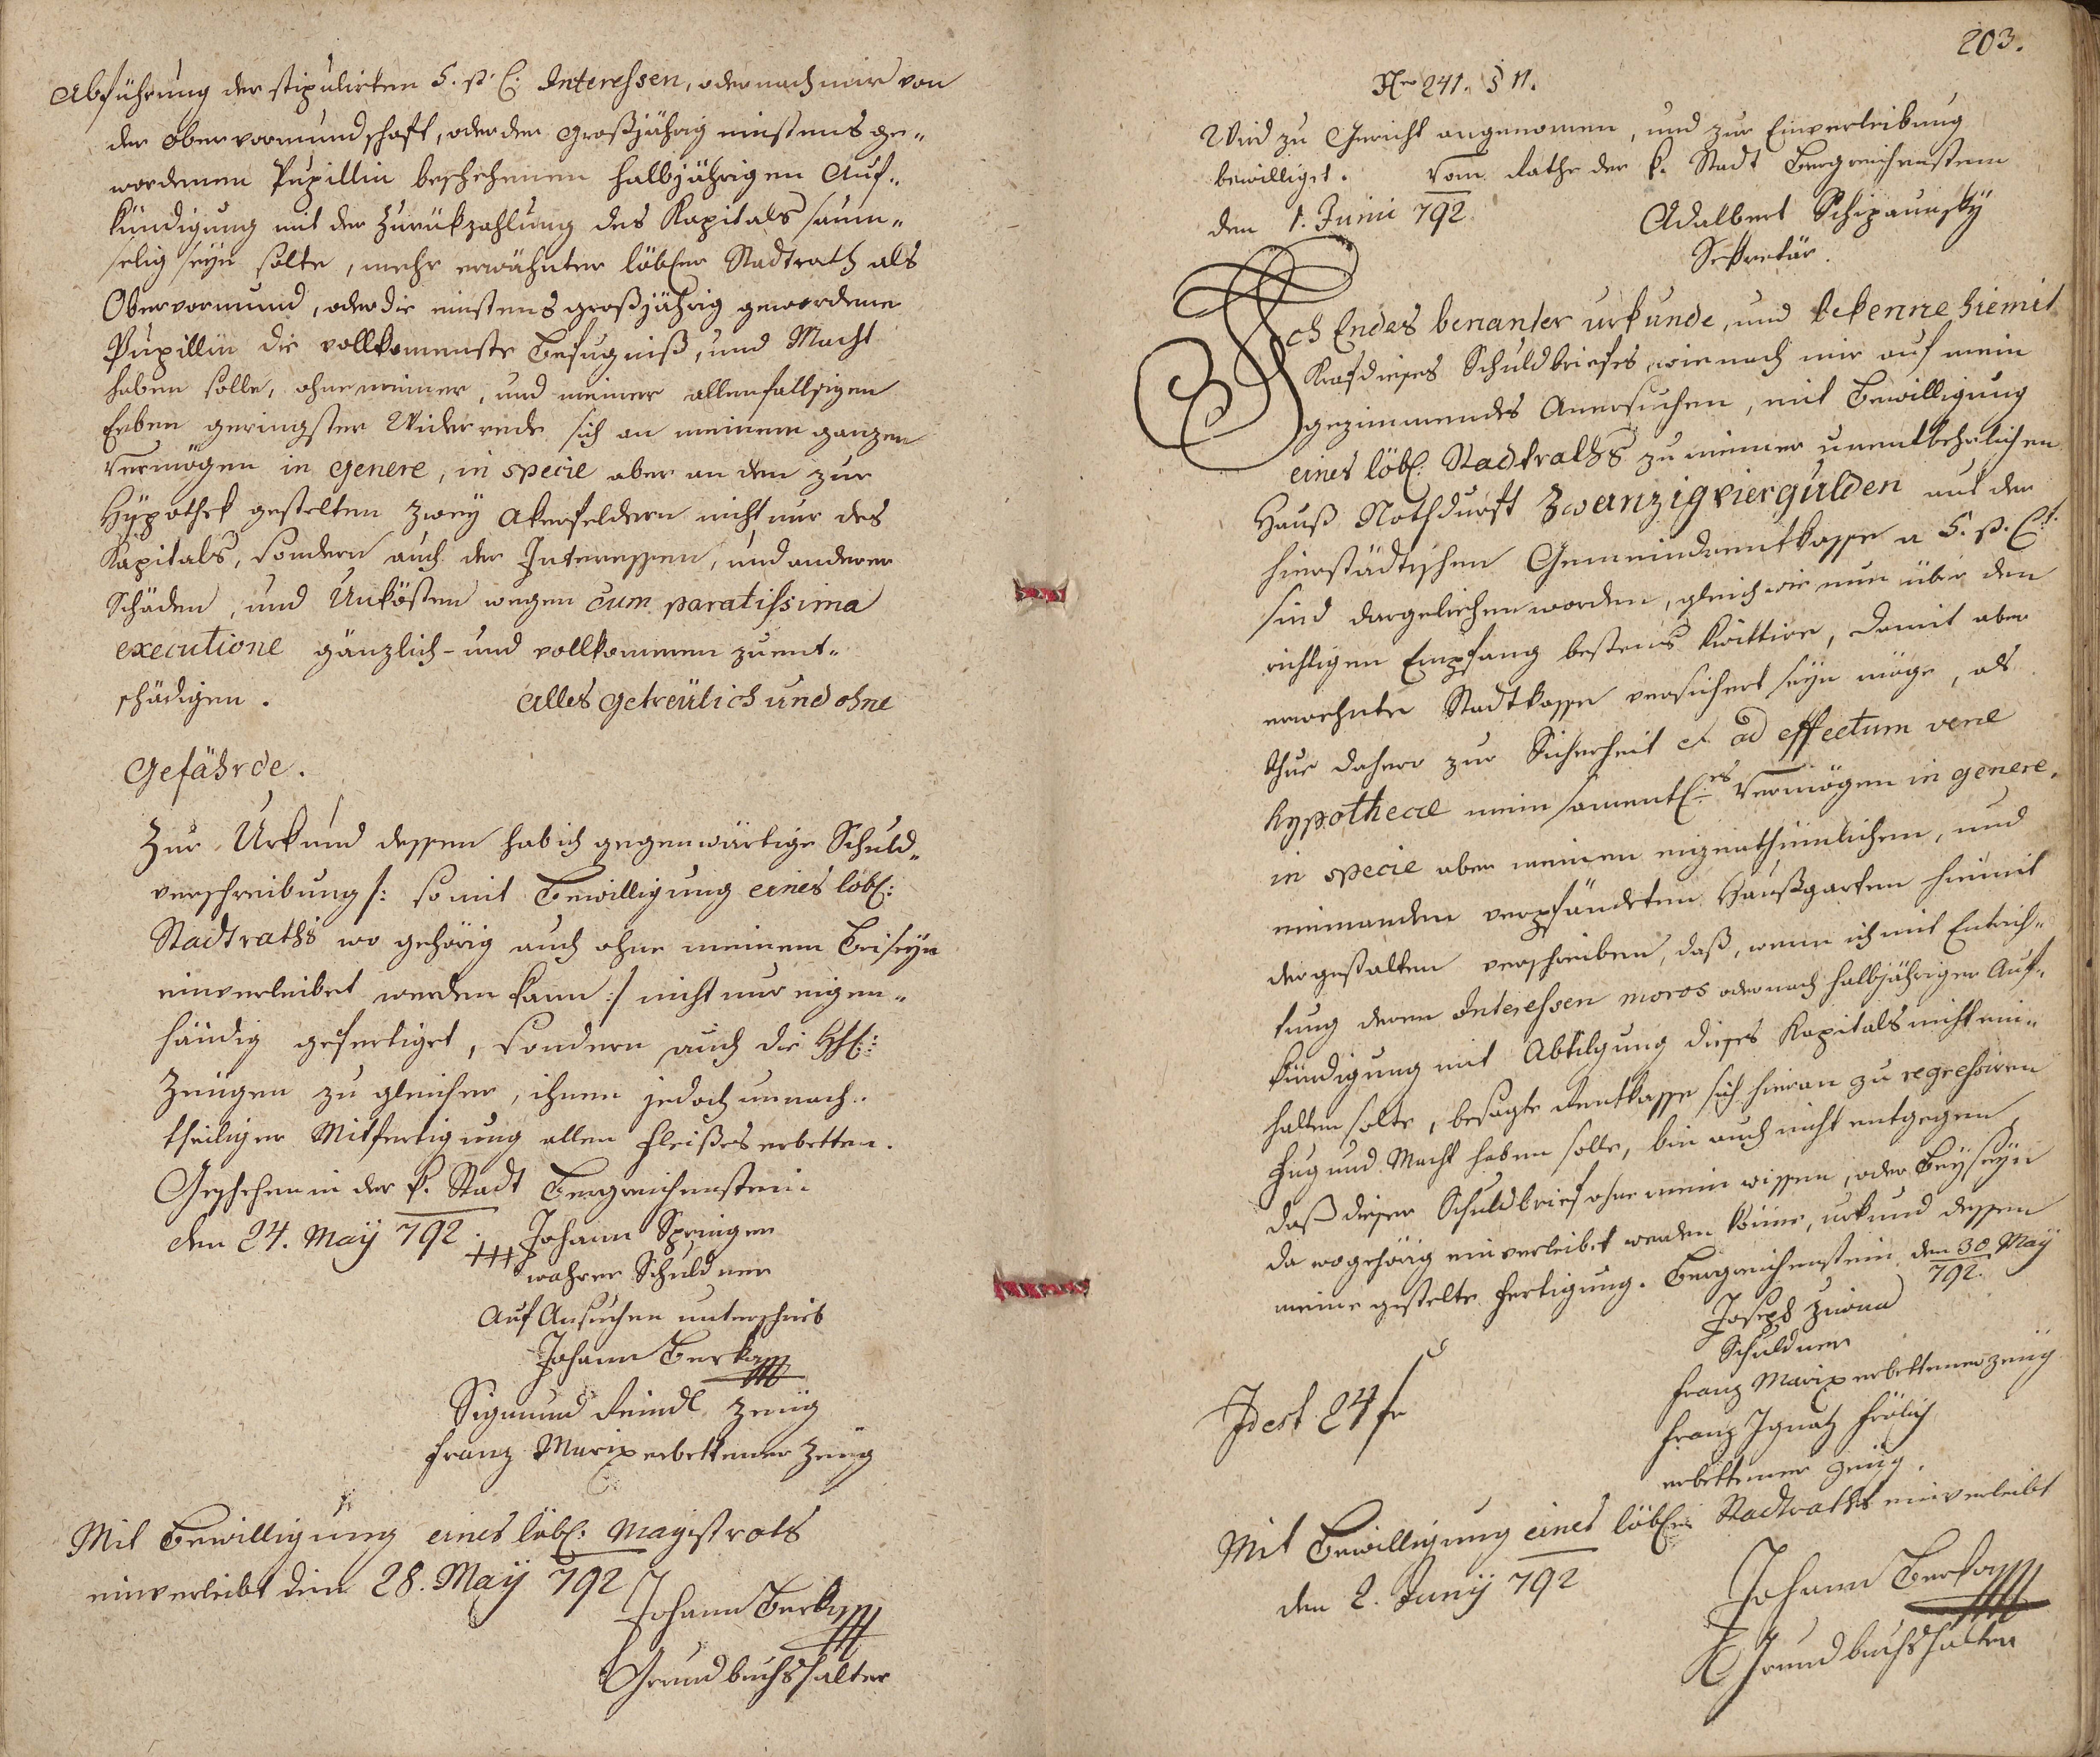 Abführung der stipulirten 5. p. C: Interessen, oder nach mir von
der Obervormundschaft, oder der großjährig einstens ge„
wordenen Pupillin beschehenen halbjährigen Auf„
kündigung mit der Zurükzahlung des Kapitals saum„
selig seyn solte, mehr erwähnter löbler Stadtrath als
Obervormund, oder die einstens großjährig gewordene
Pupillin die vollkomenste Befugniß, und Macht
haben solle, ohne meiner, und meiner allenfallsigen
Erben geringster Widerrede sich an meinem ganzen
Vermögen in genere, in specie aber an den zur
Hypothek gestelten zwey Akerfeldern nicht nur des
Kapitals, sondern auch der Interessen, und anderer
Schäden, und Unkösten wegen cum paratissima
executione gänzlich- und vollkommen zu ent„
schädigen. Alles getreülich und ohne
Gefährde.
Zur Urkund dessen hab ich gegenwärtige Schuld„
verschreibung /: so mit Bewilligung eines löbl:
Stadtraths wo gehörig auch ohne meinem Beiseyn
einverleibet werden kann :/ nicht nur eigen„
händig gefertiget, sondern auch die HH:
Zeügen zu gleicher, ihnen jedoch unnach„
theiliger Mitfertigung allen Fleißes erbetten.
Geschehen in der k. Stadt Bergreichenstein
den 24. May 792. Johann Springer
+++ wahrer Schuldner
Auf Ansuchen unterschrieb
Johann Berka
Sigmund Reindl Zeüg
Franz Marix erbettener Zeüg
Mit Bewilligung eines löbl. Magistrats
einverleibt den 28. May 792
Johann Berka
Grundbuchshalter
203.
Nro 241. § 11.
Wird zu Gericht angenomen, und zur Einverleibung
bewilliget. Vom Rathe der k. Stadt Bergreichenstein
den 1. Junii 792.
Adalbert Schipaunsky
Sekretär.
Ich Endes benanter urkunde, und bekenne hiemit
Kraf dieses Schuldbriefes, wie nach mir auf mein
gezimmendes Anersuchen, mit Bewilligung
eines löbl: Stadtraths zu meiner unentbehrlichen
Hauß Nothdurft Zwanzig vier gulden aus der
hierstädtischen Gemeindrentkasse a 5. p. Ct.
sind dargeliehen worden, gleich wie nun über den
richtigen Empfang bestens kwittire, damit aber
erwehnte Stadtkasse versichert seyn möge, als
thue dahero zur Sicherheit et ad effectum verae
hypothecae mein samentl:es Vermögen in genere,
in specie aber meinen eigenthümlichen, und
niemanden verpfändeten Haußgarten hiemit
dergestalten verschreiben, daß, wenn ich mit Entrich„
tung deren Interessen moros oder nach halbjähriger Auf„
kündigung mit Abtilgung dieses Kapitals nicht ein„
halten solte, besagte Rentkasse sich hieran zu regressiren
Fug und Macht haben solle, bin auch nicht entgegen,
daß dieser Schuldbrief ohne mein wissen, oder Beyseyn
da wo gehörig einverleibet werden könne, urkund dessen
meine gestelte Fertigung. Bergreichenstein den 30 May
792.
Joseph
Schuldner
Franz Marix erbettener zeüg
Idest 24 fr
Franz Ignatz Frölich
erbettener Zeüg.
Mit Bewilligung eines löbln Stadtraths einverleibt
den 2. Juny 792
Johann Berka
Grundbuchshalter